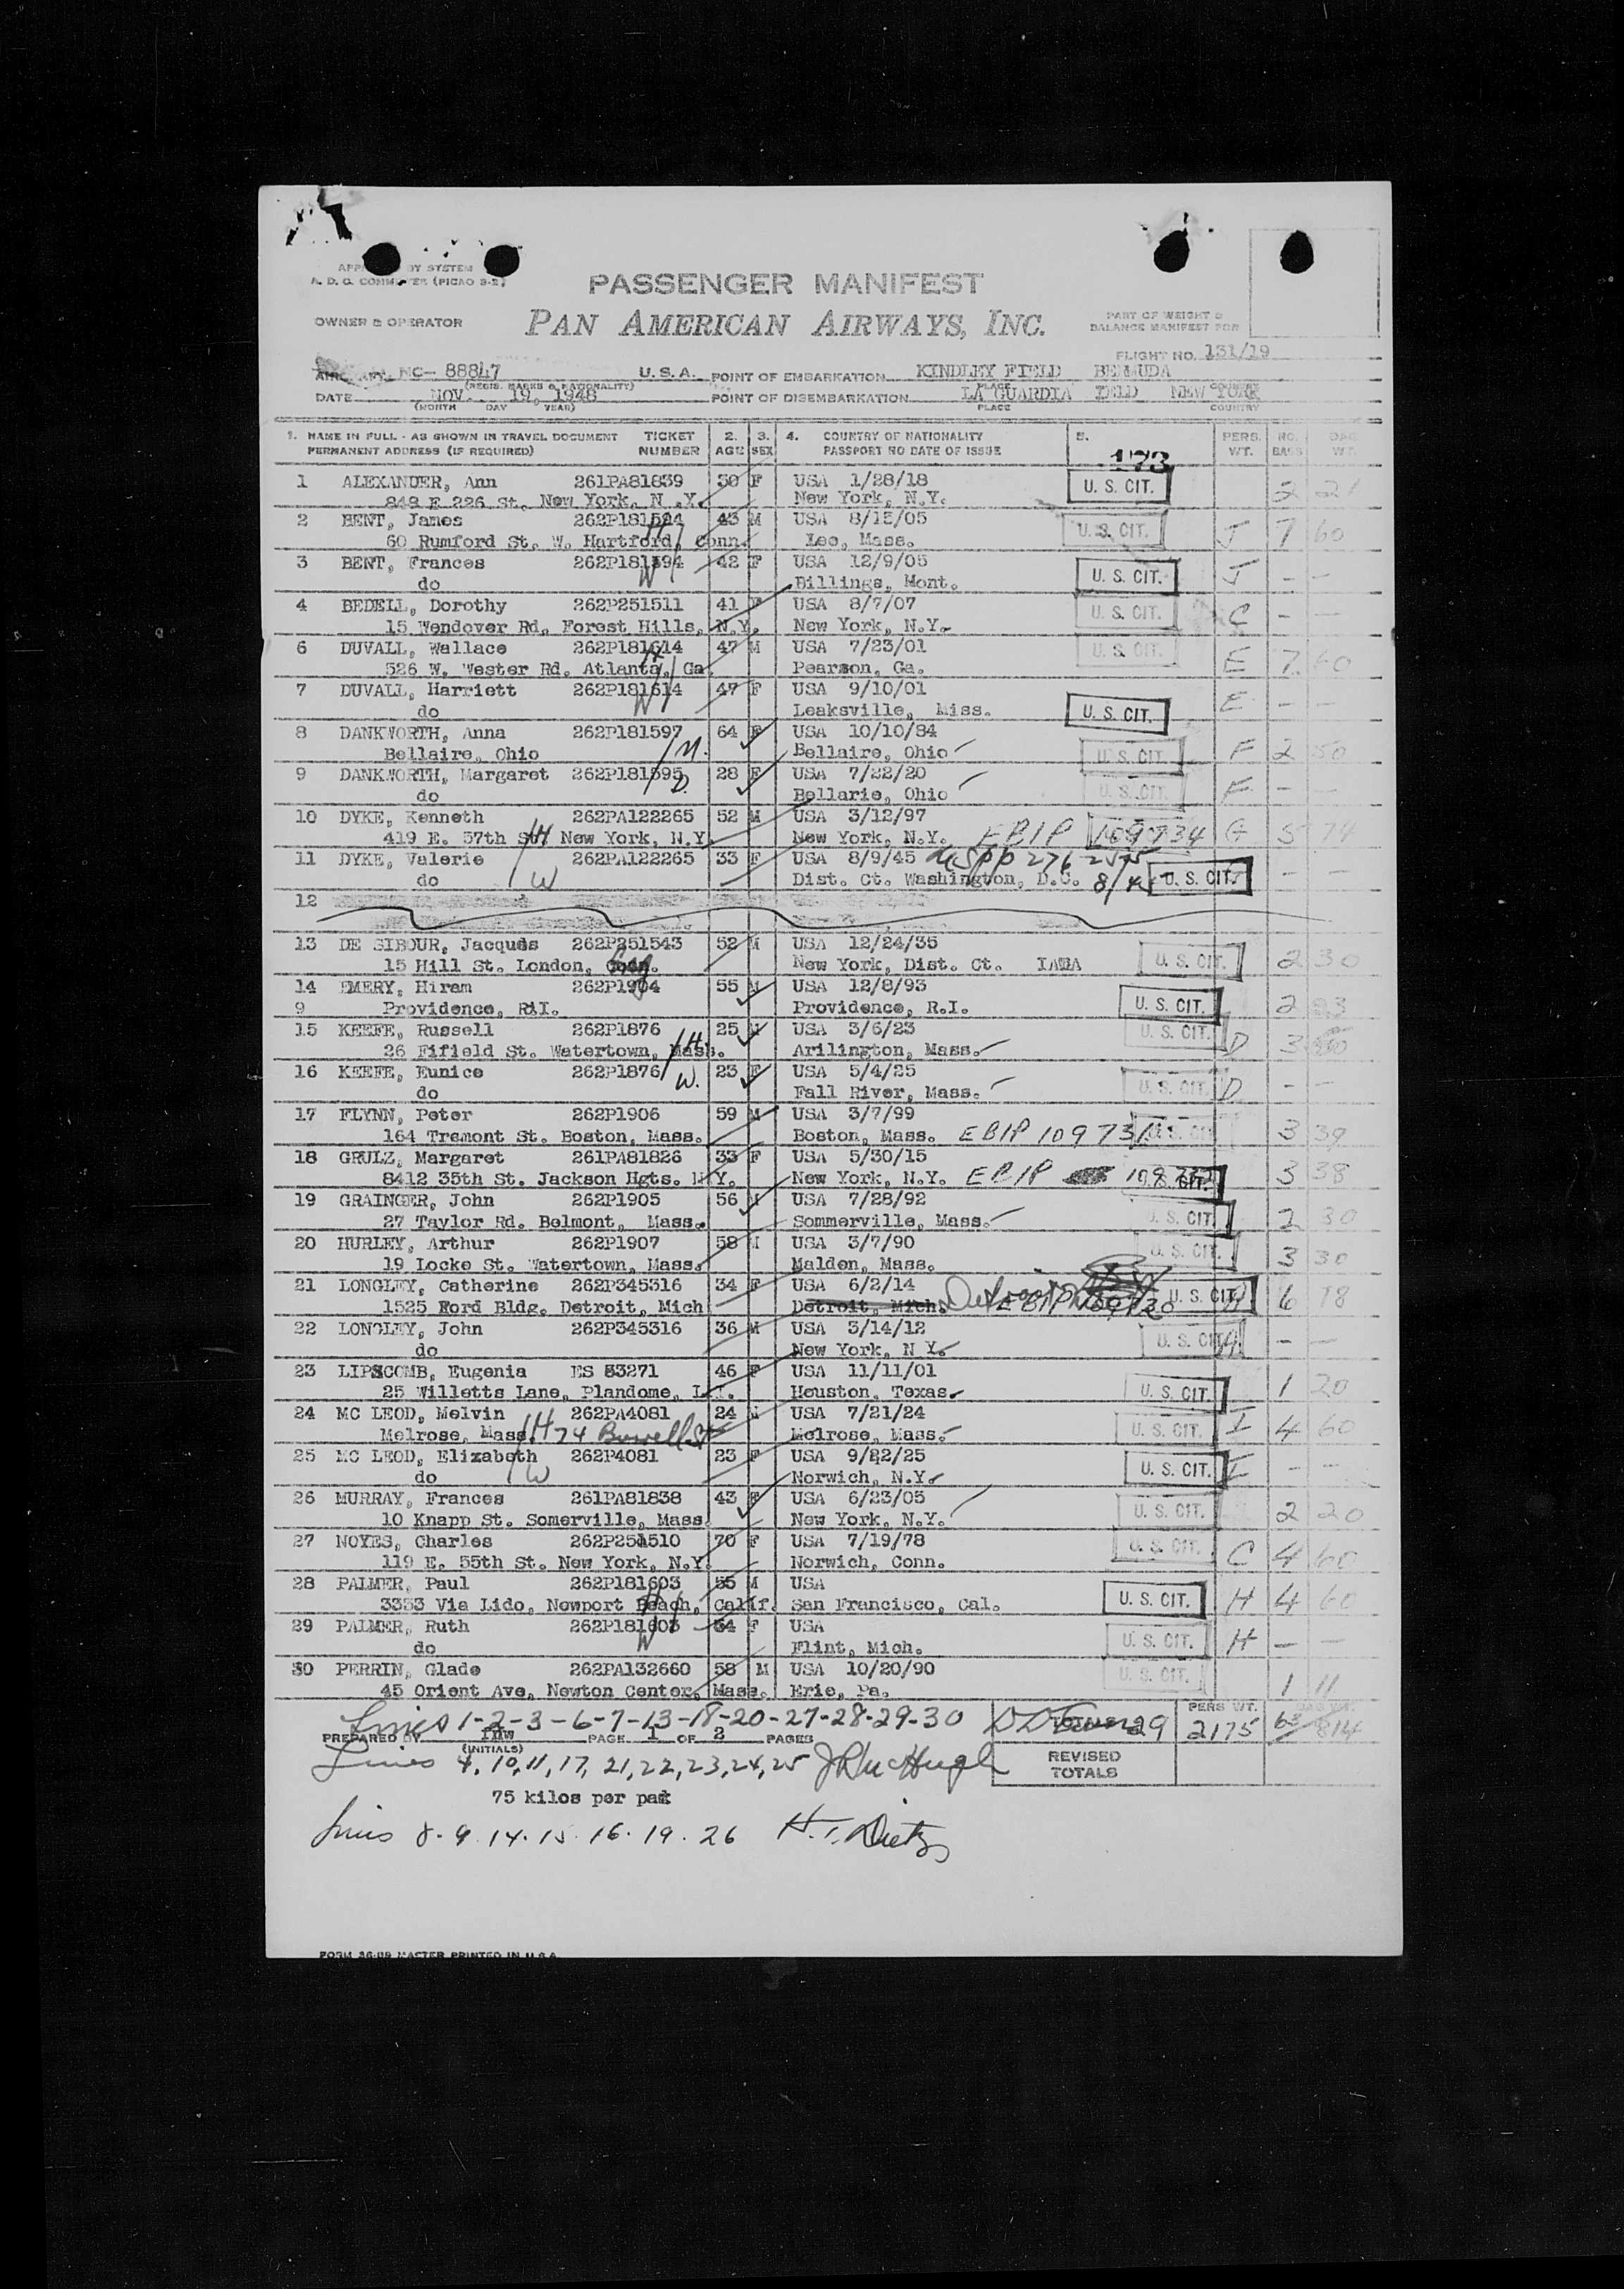 BY SYSTEM
A. D. G. (PICAO 3-2)
PASSENGER MANIFEST
OWNER & OPERATOR
PAN AMERICAN AIRWAYS, INC.
PART OF WEIGHT &
BALANCE MANIFEST FOR
FLIGHT NO. 131/19
NC- 88847 U.S.A. POINT OF EMBARKATION KINDLEY FIELD BERMUDA
(REGIS. MARKS & NATIONALITY) PLACE COUNTRY
DATE NOV. 19, 1948 POINT OF DISEMBARKATION LA GUARDIA NEW YORK
(MONTH DAY YEAR) PLACE COUNTRY
1. NAME IN FULL - AS SHOWN IN TRAVEL DOCUMENT TICKET 2. 3. 4. COUNTRY OF NATIONALITY 5. PERS. NO. BAG
PERMANENT ADDRESS (IF REQUIRED) NUMBER AGE SEX PASSPORT NO DATE OF ISSUE WT. BAGS WT.
173
1 ALEXANDER, Ann 261PA81839 30 F USA 1/28/18 U. S. CIT. 2 21
848 E 226 St. New York, N.Y. New York, N.Y.
2 BENT, James 262P181594 43 M USA 8/15/05 U. S. CIT. J 7 60
60 Rumford St. W. Hartford, Conn. H Lee, Mass.
3 BENT, Frances 262P181594 42 F USA 12/9/05 U. S. CIT. J - -
do W Billings, Mont.
4 BEDELL, Dorothy 262P251511 41 F USA 8/7/07 U. S. CIT. C - -
15 Wendover Rd. Forest Hills, N.Y. New York, N.Y.
6 DUVALL, Wallace 262P181614 47 M USA 7/23/01 U. S. CIT. E 7 60
526 W. Wester Rd. Atlanta, Ga. H Pearson, Ga.
7 DUVALL, Harriett 262P181614 47 F USA 9/10/01 U. S. CIT. E - -
do W Leaksville, Miss.
8 DANKWORTH, Anna 262P181597 64 F USA 10/10/84 U. S. CIT. F 2 50
Bellaire, Ohio M. Bellaire, Ohio
9 DANKWORTH, Margaret 262P181595 28 F USA 7/22/20 U. S. CIT. F - -
do D. Bellarie, Ohio
10 DYKE, Kenneth 262PA122265 52 M USA 3/12/97 G 5 74
419 E. 57th St. H New York, N.Y. New York, N.Y. EBIP 109734
11 DYKE, Valerie 262PA122265 33 F USA 8/9/45 USPP 276 - -
do W Dist. Ct. Washington, D.C. U. S. CIT.
12
13 DE SIBOUR, Jacques 262P251543 52 M USA 12/24/35 U. S. CIT. 2 30
15 Hill St. London, Eng New York, Dist. Ct.
14 EMERY, Hiram 262P1904 55 M USA 12/8/93 U. S. CIT. 2
9 Providence, R.I. Providence, R.I.
15 KEEFE, Russell 262P1876 25 M USA 3/6/23 U. S. CIT. D 3
26 Fifield St. Watertown, Mass. H Arilington, Mass.
16 KEEFE, Eunice 262P1876 23 F USA 5/4/25 U. S. CIT. D - -
do W. Fall River, Mass.
17 FLYNN, Peter 262P1906 59 M USA 3/7/99 3 39
164 Tremont St. Boston, Mass. Boston, Mass. EBIP 10973 U. S. CIT.
18 GRULZ, Margaret 261PA81826 33 F USA 5/30/15 3 38
8412 35th St. Jackson Hgts. N.Y. New York, N.Y. EBIP U. S. CIT.
19 GRAINGER, John 262P1905 56 M USA 7/28/92 U. S. CIT. 2 30
27 Taylor Rd. Belmont, Mass. Sommerville, Mass.
20 HURLEY, Arthur 262P1907 58 M USA 3/7/90 U. S. CIT. 3 30
19 Locke St. Watertown, Mass. Malden, Mass.
21 LONGLEY, Catherine 262P345316 34 F USA 6/2/14 U. S. CIT. A 6 78
1525 Ford Bldg. Detroit, Mich Detroit, Mich.
22 LONGLEY, John 262P345316 36 M USA 3/14/12 U. S. CIT. A - -
do New York, N Y.
23 LIPSCOMB, Eugenia ES 53271 46 F USA 11/11/01 U. S. CIT. 1 20
25 Willetts Lane, Plandome, L.I. Houston, Texas
24 MC LEOD, Melvin 262PA4081 24 M USA 7/21/24 U. S. CIT. I 4 60
Melrose, Mass. H 74 St Melrose, Mass.
25 MC LEOD, Elizabeth 262P4081 23 F USA 9/22/25 U. S. CIT. I - -
do W Norwich, N.Y.
26 MURRAY, Frances 261PA81838 43 F USA 6/23/05 U. S. CIT. 2 20
10 Knapp St. Somerville, Mass. New York, N.Y.
27 NOYES, Charles 262P251510 70 F USA 7/19/78 U. S. CIT. C 4 60
119 E. 55th St. New York, N.Y. Norwich, Conn.
28 PALMER, Paul 262P181603 55 M USA U. S. CIT. H 4 60
3333 Via Lido, Newport Beach, Calif. H San Francisco, Cal.
29 PALMER, Ruth 262P181603 54 F USA U. S. CIT. H - -
do W Flint, Mich.
30 PERRIN, Glade 262PA132660 58 M USA 10/20/90 U. S. CIT. 1 11
45 Orient Ave, Newton Center, Mass. Erie, Pa.
Lines 1-2-3-6-7-13-18-20-27-28-29-30 TOTALS 29 PERS WT. 2175 63 814
PREPARED BY PAGE 1 OF 2 PAGES
(INITIALS)
Lines 4, 10, 11, 17, 21, 22, 23, 24, 25 J R McHugh REVISED TOTALS
75 kilos per pax
Lines 8-9.14.15.16.19.26 H.T. Dietz